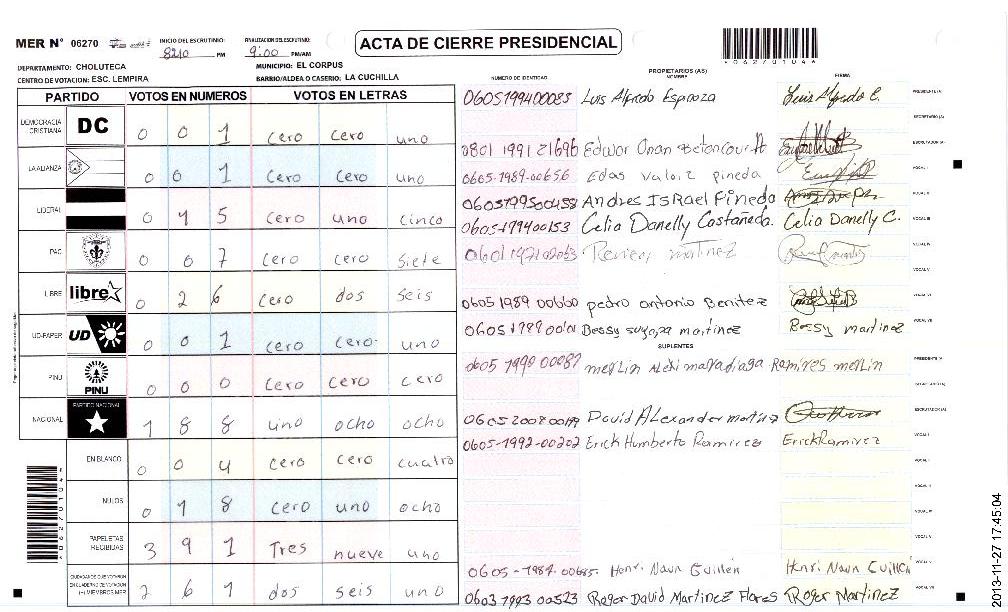 MER N° 06270 INICIO DEL ESCRUTINIO: 8210 PM FINALIZACION DEL ESCRUTINIO: 9:00 PM/AM ACTA DE CIERRE PRESIDENCIAL
*06270104*
DEPARTAMENTO: CHOLUTECA MUNICIPIO: EL CORPUS
CENTRO DE VOTACION: ESC. LEMPIRA BARRIO/ALDEA O CASERIO: LA CUCHILLA
NUMERO DE IDENTIDAD PROPIETARIOS (AS) NOMBRE FIRMA
PARTIDO VOTOS EN NUMEROS VOTOS EN LETRAS
DEMOCRACIA CRISTIANA DC 0 0 1 cero cero uno
LA ALIANZA 0 0 1 cero cero uno
LIBERAL 0 1 5 cero uno cinco
PAC 0 0 7 cero cero siete
LIBRE libre 0 2 6 cero dos seis
UD-FAPER UD 0 0 1 cero cero uno
PINU PINU 0 0 0 cero cero cero
NACIONAL PARTIDO NACIONAL 1 8 8 uno ocho ocho
EN BLANCO 0 0 4 cero cero cuatro
NULOS 0 1 8 cero uno ocho
PAPELETAS RECIBIDAS 3 9 1 Tres nueve uno
CIUDADANOS QUE VOTARON EN CUADERNO DE VOTACION (+) MIEMBROS MER 2 6 1 dos seis uno
0605199400085 Luis Alfredo Espinoza Luis Alfredo E. PRESIDENTE (A)
SECRETARIO (A)
0801 1991 21696 Edwar Onan Betancourth ESCRUTADOR (A)
0605-1989-00656 Edas Valoiz pineda VOCAL I
0605199500458 Andres ISRael Pinedo VOCAL II
0605-199400153 Celia Danelly Castañeda. Celia Danelly C. VOCAL III
martinez VOCAL IV
VOCAL V
0605 1989 00660 pedro antonio Benitez VOCAL VI
Bessy martinez Bessy martinez VOCAL VII
SUPLENTES
0605 1990 00087 merlin Ramires merlin PRESIDENTE (A)
SECRETARIO (A)
David Alexander martinez ESCRUTADOR (A)
0605-1992-00202 Erick Humberto Ramirez Erick Ramirez VOCAL I
VOCAL II
VOCAL III
VOCAL IV
VOCAL V
0605-1987-00685. Henri Naun Guillen Henri Naun Guillen VOCAL VI
0603 1993 00523 Roger David Martinez Flores Roger Martinez VOCAL VII
*06270104*
2013-11-27 17:45:04